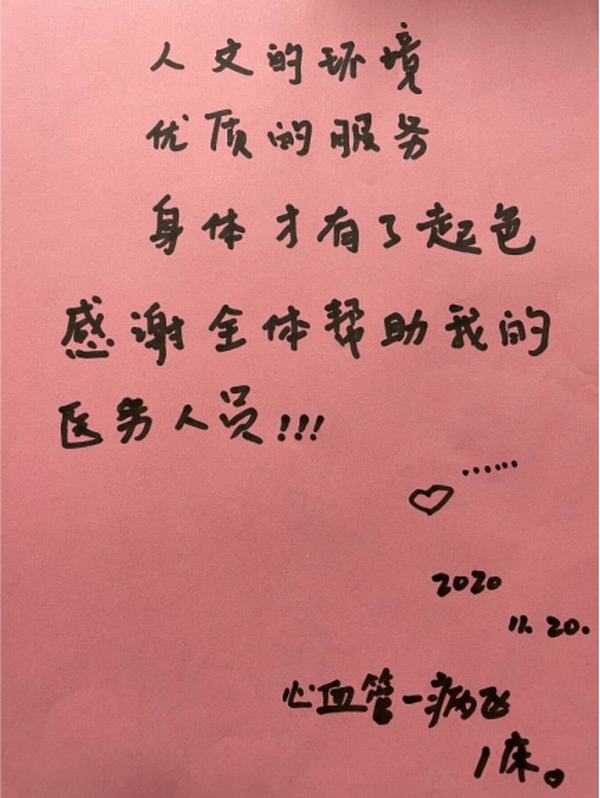 人文的环境
优质的服务
身体才有了起色
感谢全体帮助我的
医务人员!!!
♡……
2020
11.20.
心血管一病区
1床。